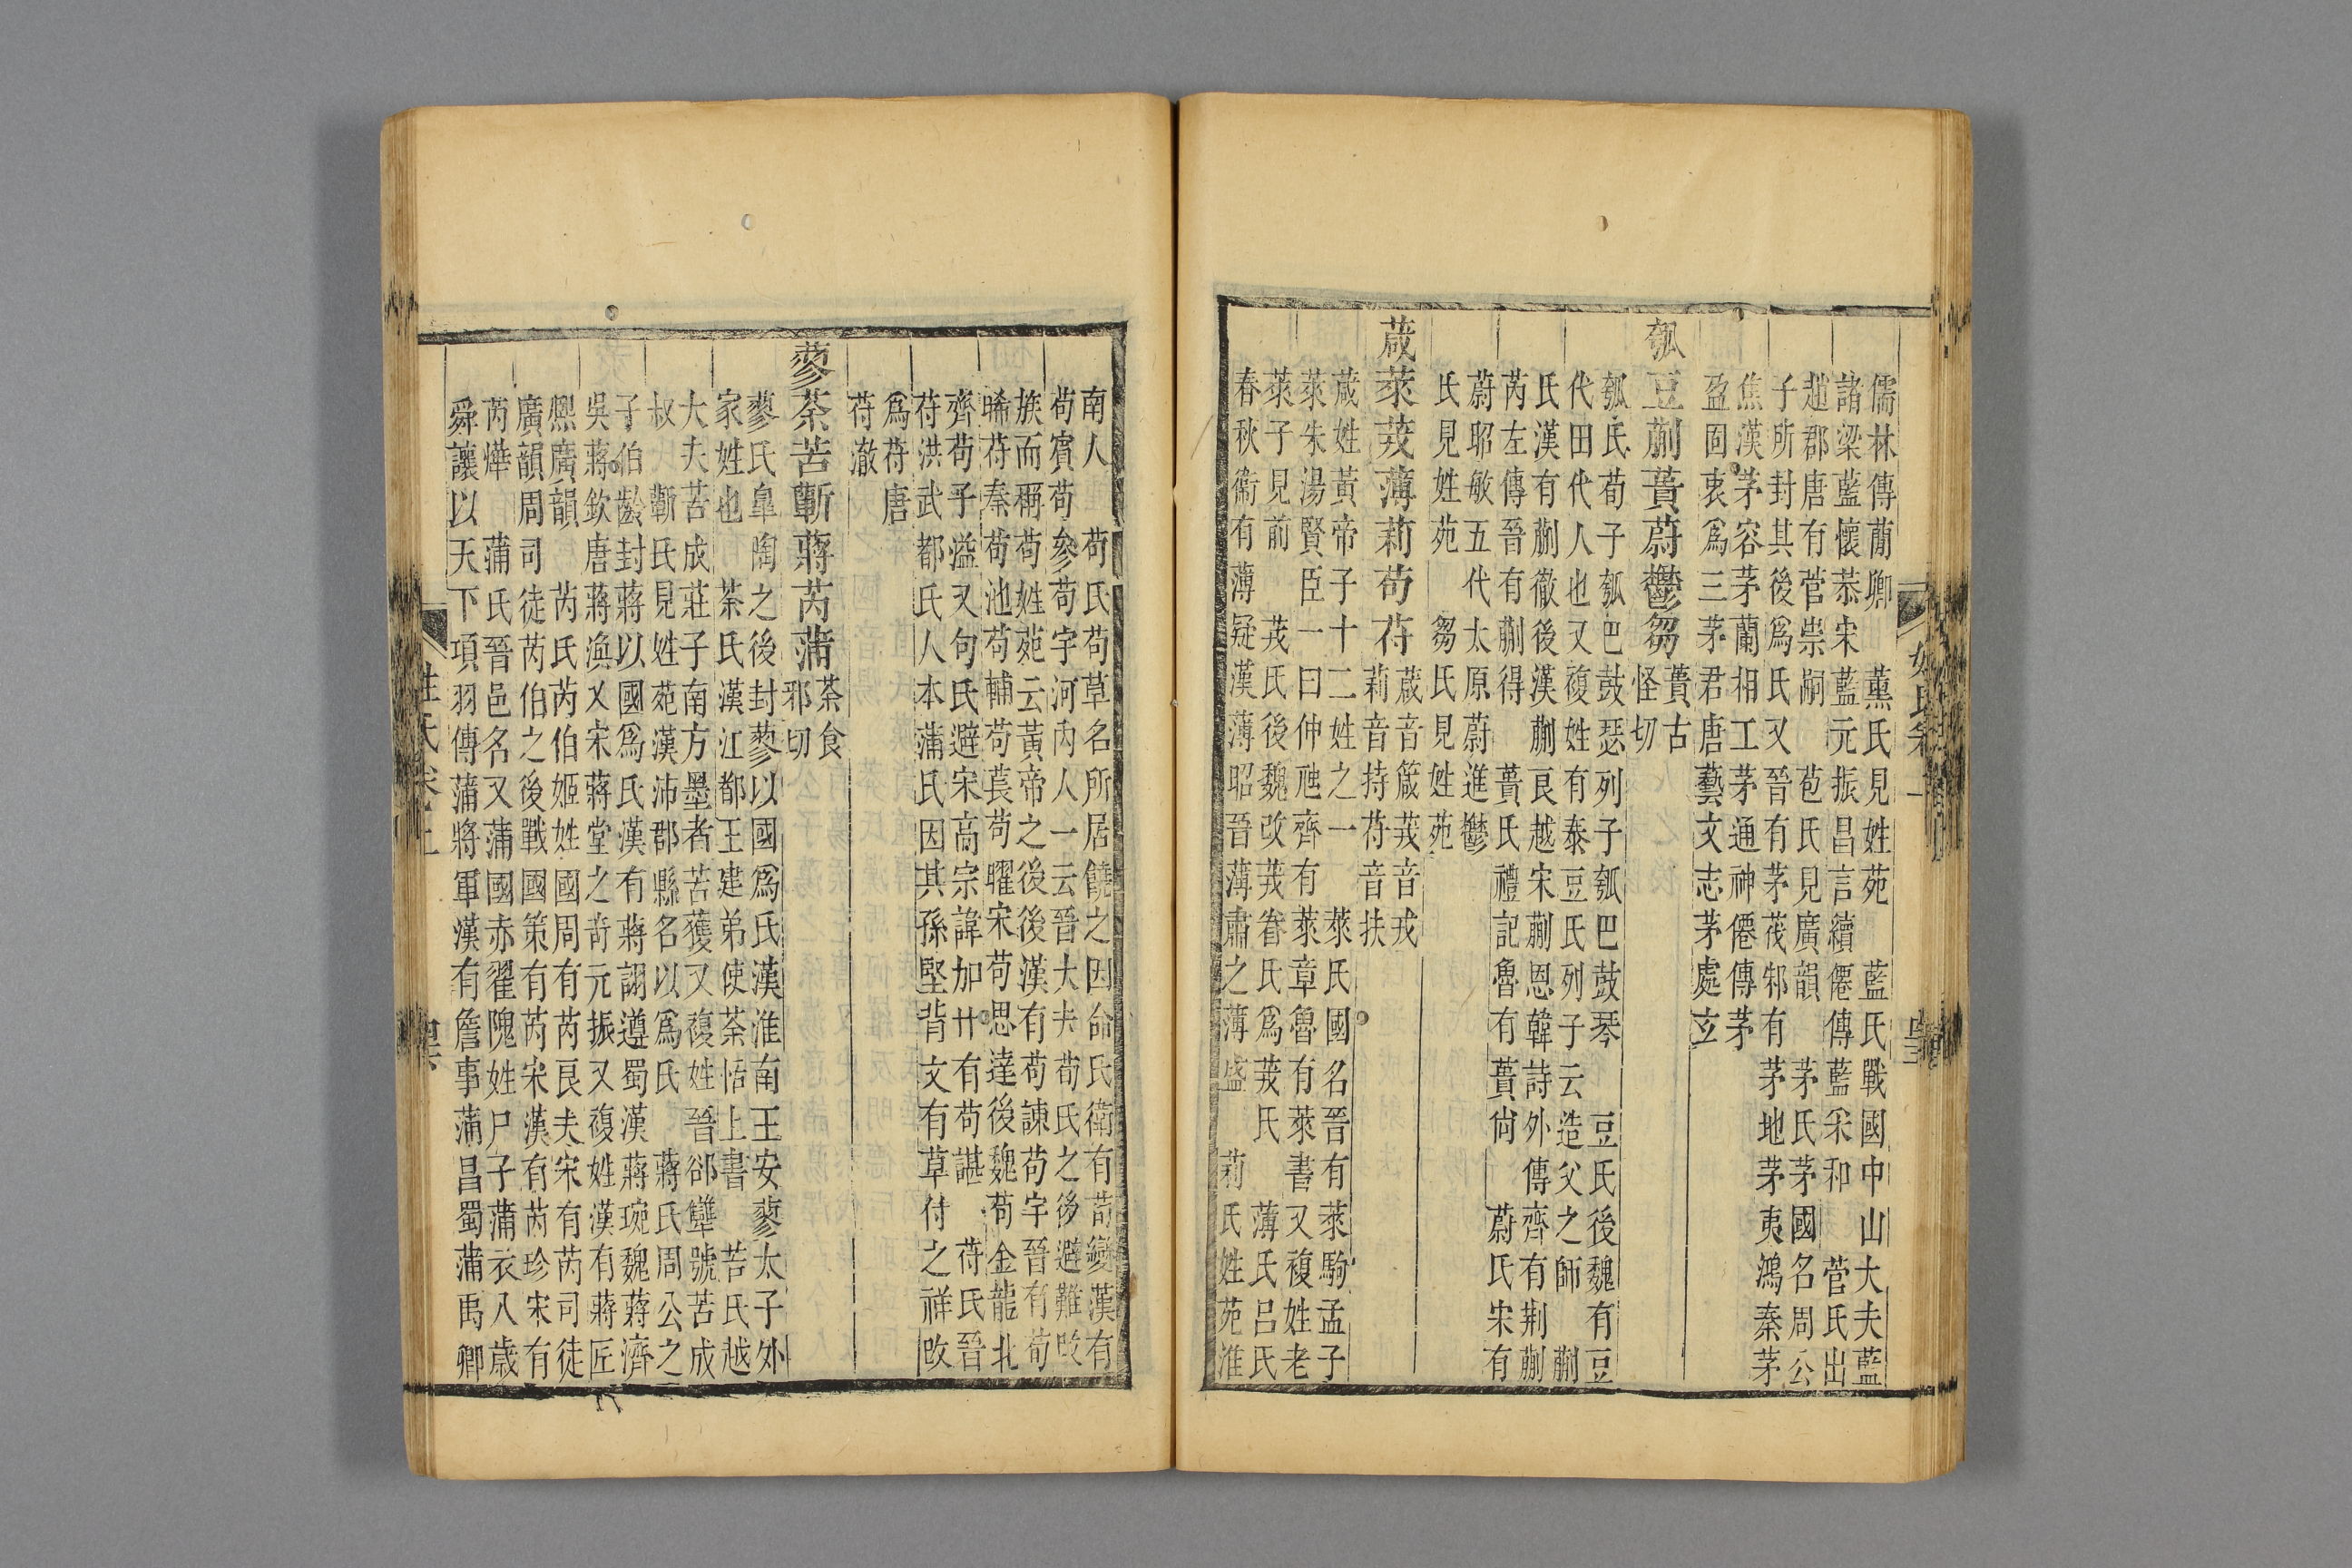 儒林傳蕳卿　薰氏見姓苑　藍氏戰國中山大夫藍
諸梁藍懷恭宋藍元振昌言續僊傳藍采和　菅氏出
趙郡唐有菅崇嗣　苞氏見廣韻　茅氏茅國名周公
子所封其後爲氏又晉有茅茷邾有茅地茅夷鴻秦茅
焦漢茅容茅蘭相工茅通神僊傳茅
盈固衷爲三茅君唐藝文志茅處玄
瓠豆蒯蕢蔚鬱芻
蕢古
怪切
瓠氏荀子瓠巴鼓瑟列子瓠巴鼓琴　豆氏後魏有豆
代田代人也又複姓有泰豆氏列子云造父之師　蒯
氏漢有蒯徹後漢蒯良越宋蒯恩韓詩外傳齊有荆蒯
芮左傳晉有蒯得　蕢氏禮記魯有蕢尙　蔚氏宋有
蔚昭敏五代太原蔚進　鬱
氏見姓苑　芻氏見姓苑
葴萊茙薄莉苟苻
葴音箴茙音戎
莉音持苻音扶
葴姓黃帝子十二姓之一　萊氏國名晉有萊駒孟子
萊朱湯賢臣一曰仲虺齊有萊章魯有萊書又複姓老
萊子見前　茙氏後魏改茙眷氏爲茙氏　薄氏呂氏
春秋衞有薄疑漢薄昭晉薄肅之薄盛　莉氏姓苑淮
姓氏
南人　苟氏苟草名所居饒之因命氏衞有苟變漢有
苟賓苟參苟字河內人一云晉大夫荀氏之後避難改
族而稱苟姓苑云黃帝之後後漢有苟諫苟宇晉有苟
晞苻秦苟池苟輔苟萇苟曜宋苟思達後魏苟金龍北
齊苟子溢又句氏避宋高宗諱加艹有苟諶　苻氏晉
苻洪武都氐人本蒲氏因其孫堅背文有草付之祥改
爲苻唐
苻澈
蓼荼苦蘄蔣芮蒲
荼食
邪切
蓼氏臯陶之後封蓼以國爲氏漢淮南王安蓼太子外
家姓也　荼氏漢江都王建弟使荼恬上書　苦氏越
大夫苦成莊子南方墨者苦獲又複姓晉郤犨號苦成
叔　蘄氏見姓苑漢沛郡縣名以爲氏　蔣氏周公之
子伯齡封蔣以國爲氏漢有蔣詡遵蜀漢蔣琬魏蔣濟
吳蔣欽唐蔣渙乂宋蔣堂之奇元振又複姓漢有蔣匠
熙廣韻　芮氏芮伯姬姓國周有芮良夫宋有芮司徒
廣韻周司徒芮伯之後戰國策有芮宋漢有芮珍宋有
芮燁　蒲氏晉邑名又蒲國赤翟隗姓尸子蒲衣八歲
舜讓以天下項羽傳蒲將軍漢有詹事蒲昌蜀蒲禹卿
姓氏